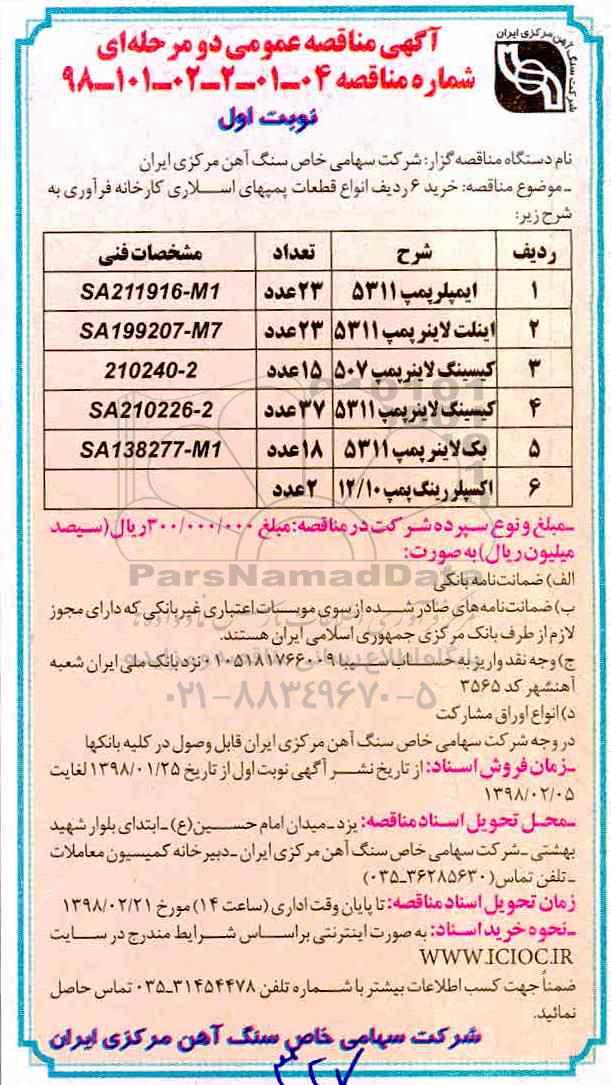 شرکت سنگ آهن مرکزی ایران
آگهی مناقصه عمومی دو مرحله‌ای
شماره مناقصه ۰۴-۰۱-۲-۰۲-۱۰۱-۹۸
نوبت اول
نام دستگاه مناقصه گزار: شرکت سهامی خاص سنگ آهن مرکزی ایران
-موضوع مناقصه: خرید ۶ ردیف انواع قطعات پمپهای اسلاری کارخانه فرآوری به
شرح زیر:
ردیف شرح تعداد مشخصات فنی
۱ ایمپلر پمپ ۵۳۱۱ ۲۳ عدد SA211916-M1
۲ اینلت لاینر پمپ ۵۳۱۱ ۲۳ عدد SA199207-M7
۳ کیسینگ لاینر پمپ ۵۰۷ ۱۵ عدد 210240-2
۴ کیسینگ لاینر پمپ ۵۳۱۱ ۳۷ عدد SA210226-2
۵ بک لاینر پمپ ۵۳۱۱ ۱۸ عدد SA138277-M1
۶ اکسپلر رینگ پمپ ۱۲/۱۰ ۲ عدد
-مبلغ و نوع سپرده شرکت در مناقصه: مبلغ ۳۰۰/۰۰۰/۰۰۰ ریال (سیصد
میلیون ریال) به صورت:
الف) ضمانت‌نامه بانکی
ParsNamadData
ب) ضمانت‌نامه‌های صادر شده از سوی موسسات اعتباری غیربانکی که دارای مجوز
لازم از طرف بانک مرکزی جمهوری اسلامی ایران هستند.
ج) وجه نقد واریز به حساب سیبا ۰۱۰۵۱۸۱۷۶۶۰۰۹ نزد بانک ملی ایران شعبه
آهنشهر کد ۳۵۶۵
۰۲۱-۸۸۳۴۹۶۷۰-۵
د) انواع اوراق مشارکت
در وجه شرکت سهامی خاص سنگ آهن مرکزی ایران قابل وصول در کلیه بانکها
-زمان فروش اسناد: از تاریخ نشر آگهی نوبت اول از تاریخ ۱۳۹۸/۰۱/۲۵ لغایت
۱۳۹۸/۰۲/۰۵
-محل تحویل اسناد مناقصه: یزد-میدان امام حسین(ع)-ابتدای بلوار شهید
بهشتی-شرکت سهامی خاص سنگ آهن مرکزی ایران-دبیرخانه کمیسیون معاملات
-تلفن تماس(۳۶۲۸۵۶۳۰-۰۳۵)
زمان تحویل اسناد مناقصه: تا پایان وقت اداری (ساعت ۱۴) مورخ ۱۳۹۸/۰۲/۲۱
-نحوه خرید اسناد: به صورت اینترنتی براساس شرایط مندرج در سایت
WWW.ICIOC.IR
ضمناً جهت کسب اطلاعات بیشتر با شماره تلفن ۳۱۴۵۴۴۷۸-۰۳۵ تماس حاصل
نمائید.
شرکت سهامی خاص سنگ آهن مرکزی ایران